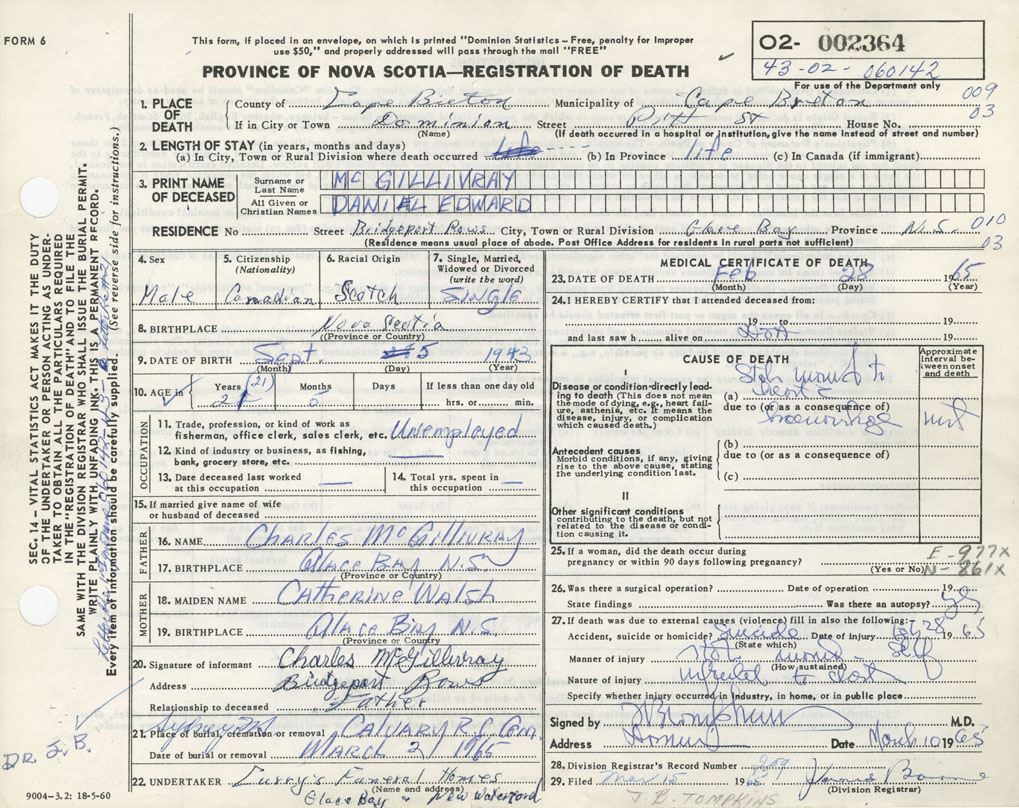 FORM 6
This form, if placed in an envelope, on which is printed "Dominion Statistics - Free, penalty for improper
use $50," and properly addressed will pass through the mail "FREE"
PROVINCE OF NOVA SCOTIA—REGISTRATION OF DEATH
O2- 002364
43-02-060142
For use of the Department only
009
03
1. PLACE OF DEATH
County of Cape Breton Municipality of Cape Breton
If in City or Town Dominion Street Pitt St House No.
(Name) (If death occurred in a hospital or institution, give the name instead of street and number)
2. LENGTH OF STAY (in years, months and days)
(a) In City, Town or Rural Division where death occurred (b) In Province life (c) In Canada (if immigrant)
3. PRINT NAME OF DECEASED
Surname or Last Name McGILLIVRAY
All Given or Christian Names DANIEL EDWARD
RESIDENCE No Street Bridgeport Rows City, Town or Rural Division Glace Bay Province N.S.
010
03
(Residence means usual place of abode. Post Office Address for residents in rural parts not sufficient)
4. Sex Male
5. Citizenship (Nationality) Canadian
6. Racial Origin Scotch
7. Single, Married, Widowed or Divorced (write the word) SINGLE
8. BIRTHPLACE Nova Scotia
(Province or Country)
9. DATE OF BIRTH Sept. 5 1943
(Month) (Day) (Year)
10. AGE in Years (21) 21 Months 5 Days If less than one day old hrs. or min.
OCCUPATION
11. Trade, profession, or kind of work as fisherman, office clerk, sales clerk, etc. Unemployed
12. Kind of industry or business, as fishing, bank, grocery store, etc.
13. Date deceased last worked at this occupation
14. Total yrs. spent in this occupation
15. If married give name of wife or husband of deceased
FATHER
16. NAME Charles McGillivray
17. BIRTHPLACE Glace Bay N.S.
(Province or Country)
MOTHER
18. MAIDEN NAME Catherine Walsh
19. BIRTHPLACE Glace Bay N.S.
(Province or Country)
20. Signature of informant Charles McGillivray
Address Bridgeport Rows
Relationship to deceased Father
21. Place of burial, cremation or removal Calvary R.C. Cem.
Date of burial or removal March 2, 1965
22. UNDERTAKER Curry's Funeral Homes
(Name and address)
Glace Bay New Waterford
MEDICAL CERTIFICATE OF DEATH
23. DATE OF DEATH Feb 28 1965
(Month) (Day) (Year)
24. I HEREBY CERTIFY that I attended deceased from:
19 to 19
and last saw h alive on DOA 19
CAUSE OF DEATH
Approximate interval between onset and death
I
Disease or condition directly leading to death (This does not mean the mode of dying, e.g., heart failure, asthenia, etc. It means the disease, injury, or complication which caused death.)
(a) wound to heart
due to (or as a consequence of)
(b)
due to (or as a consequence of)
(c)
Antecedent causes
Morbid conditions, if any, giving rise to the above cause, stating the underlying condition last.
II
Other significant conditions
contributing to the death, but not related to the disease or condition causing it.
25. If a woman, did the death occur during pregnancy or within 90 days following pregnancy? (Yes or No)
E-977X
N-861X
26. Was there a surgical operation? Date of operation 19
State findings Was there an autopsy? yes
27. If death was due to external causes (violence) fill in also the following:
Accident, suicide or homicide? Suicide Date of injury Feb 28 1965
(State which)
Manner of injury wound Self
(How sustained)
Nature of injury to chest
Specify whether injury occurred in industry, in home, or in public place
Signed by M.D.
Address Dominion Date March 10 1965
28. Division Registrar's Record Number
29. Filed Mar 15
(Division Registrar)
J. B. TOMPKINS
SEC. 14 – VITAL STATISTICS ACT MAKES IT THE DUTY
OF THE UNDERTAKER OR PERSON ACTING AS UNDER-
TAKER TO OBTAIN ALL THE PARTICULARS REQUIRED
IN THE "REGISTRATION OF DEATH" AND TO FILE THE
SAME WITH THE DIVISION REGISTRAR WHO SHALL ISSUE THE BURIAL PERMIT.
WRITE PLAINLY WITH UNFADING INK. THIS IS A PERMANENT RECORD.
Every item of information should be carefully supplied. (See reverse side for instructions.)
DR. J. B.
9004-3.2: 18-5-60